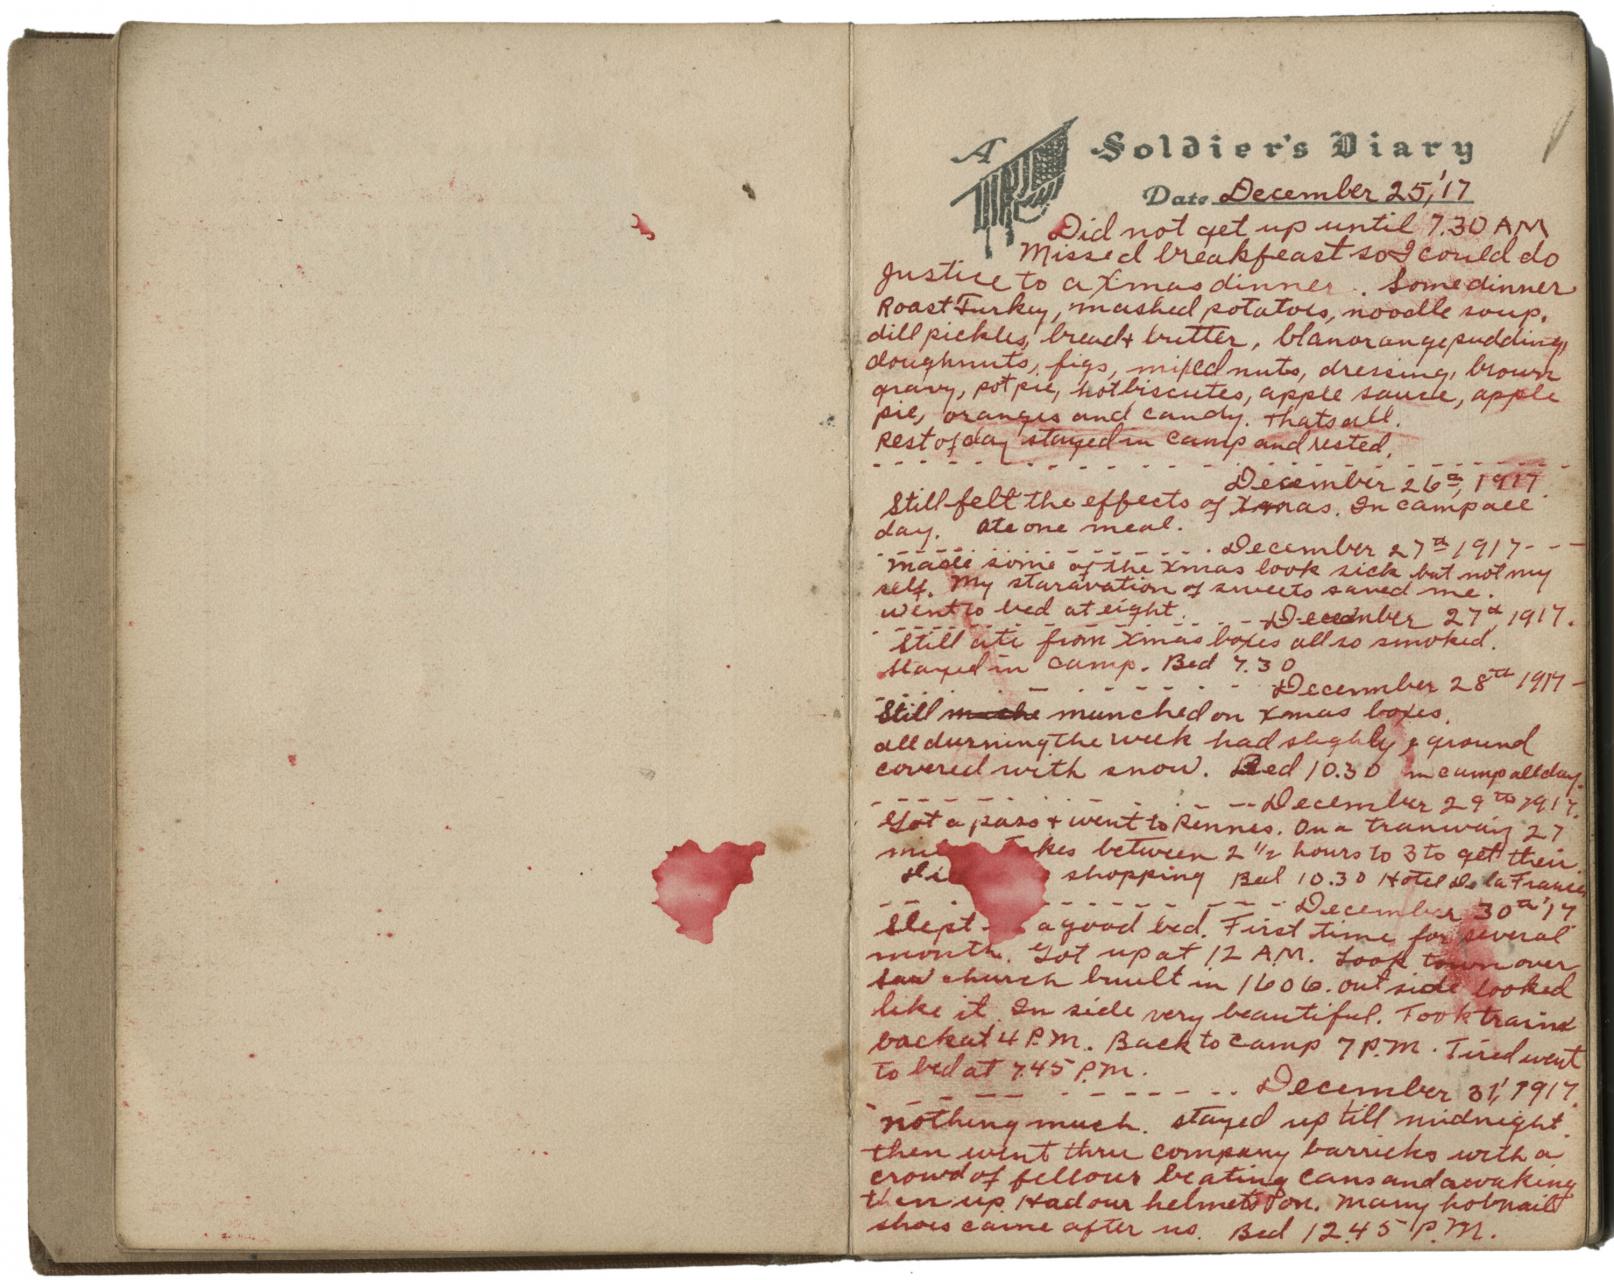 A Soldier's Diary
Date December 25,'17
Did not get up until 7.30 AM
Missed breakfeast so I could do
justice to a Xmas dinner. Some dinner
Roast Turkey, mashed potatoes, noodle soup,
dill pickles, bread + butter, blanorange pudding,
doughnuts, figs, mixed nuts, dressing, brown
gravy, pot pie, hot biscutes, apple sauce, apple
pie, oranges and candy. Thats all.
Rest of day stayed in camp and rested.
December 26th, 1917.
Still felt the effects of Xmas. In camp all
day. Ate one meal.
December 27th 1917
made some of the Xmas look sick but not my
self. My staravation of sweets saved me.
Went to bed at eight.
December 27th, 1917.
Still ate from Xmas boxes allso smoked.
Stayed in camp. Bed 7.30
December 28th 1917
Still munched on Xmas boxes.
all durning the week had slighly ground
covered with snow. Bed 10.30 in camp all day.
December 29th 1917.
Got a pass + went to Rennes. On a tranway 27
takes between 2 1/2 hours to 3 to get their
shopping Bed 10.30 Hotel De la France
December 30th '17
Slept a good bed. First time for several
month. Got up at 12 AM. Look town over
saw church buuilt in 1606. out side looked
like it. In side very beautiful. Took train
back at 4 P.M. Back to camp 7 P.M. Tired went
to bed at 7.45 P.M.
December 31, 1917.
nothing much. stayed up till midnight.
then went thru company barricks with a
crowd of fellour beating cans and awaking
then up. Had our helmets on. Many hobnail
shoes came after us. Bed 12.45 P.M.